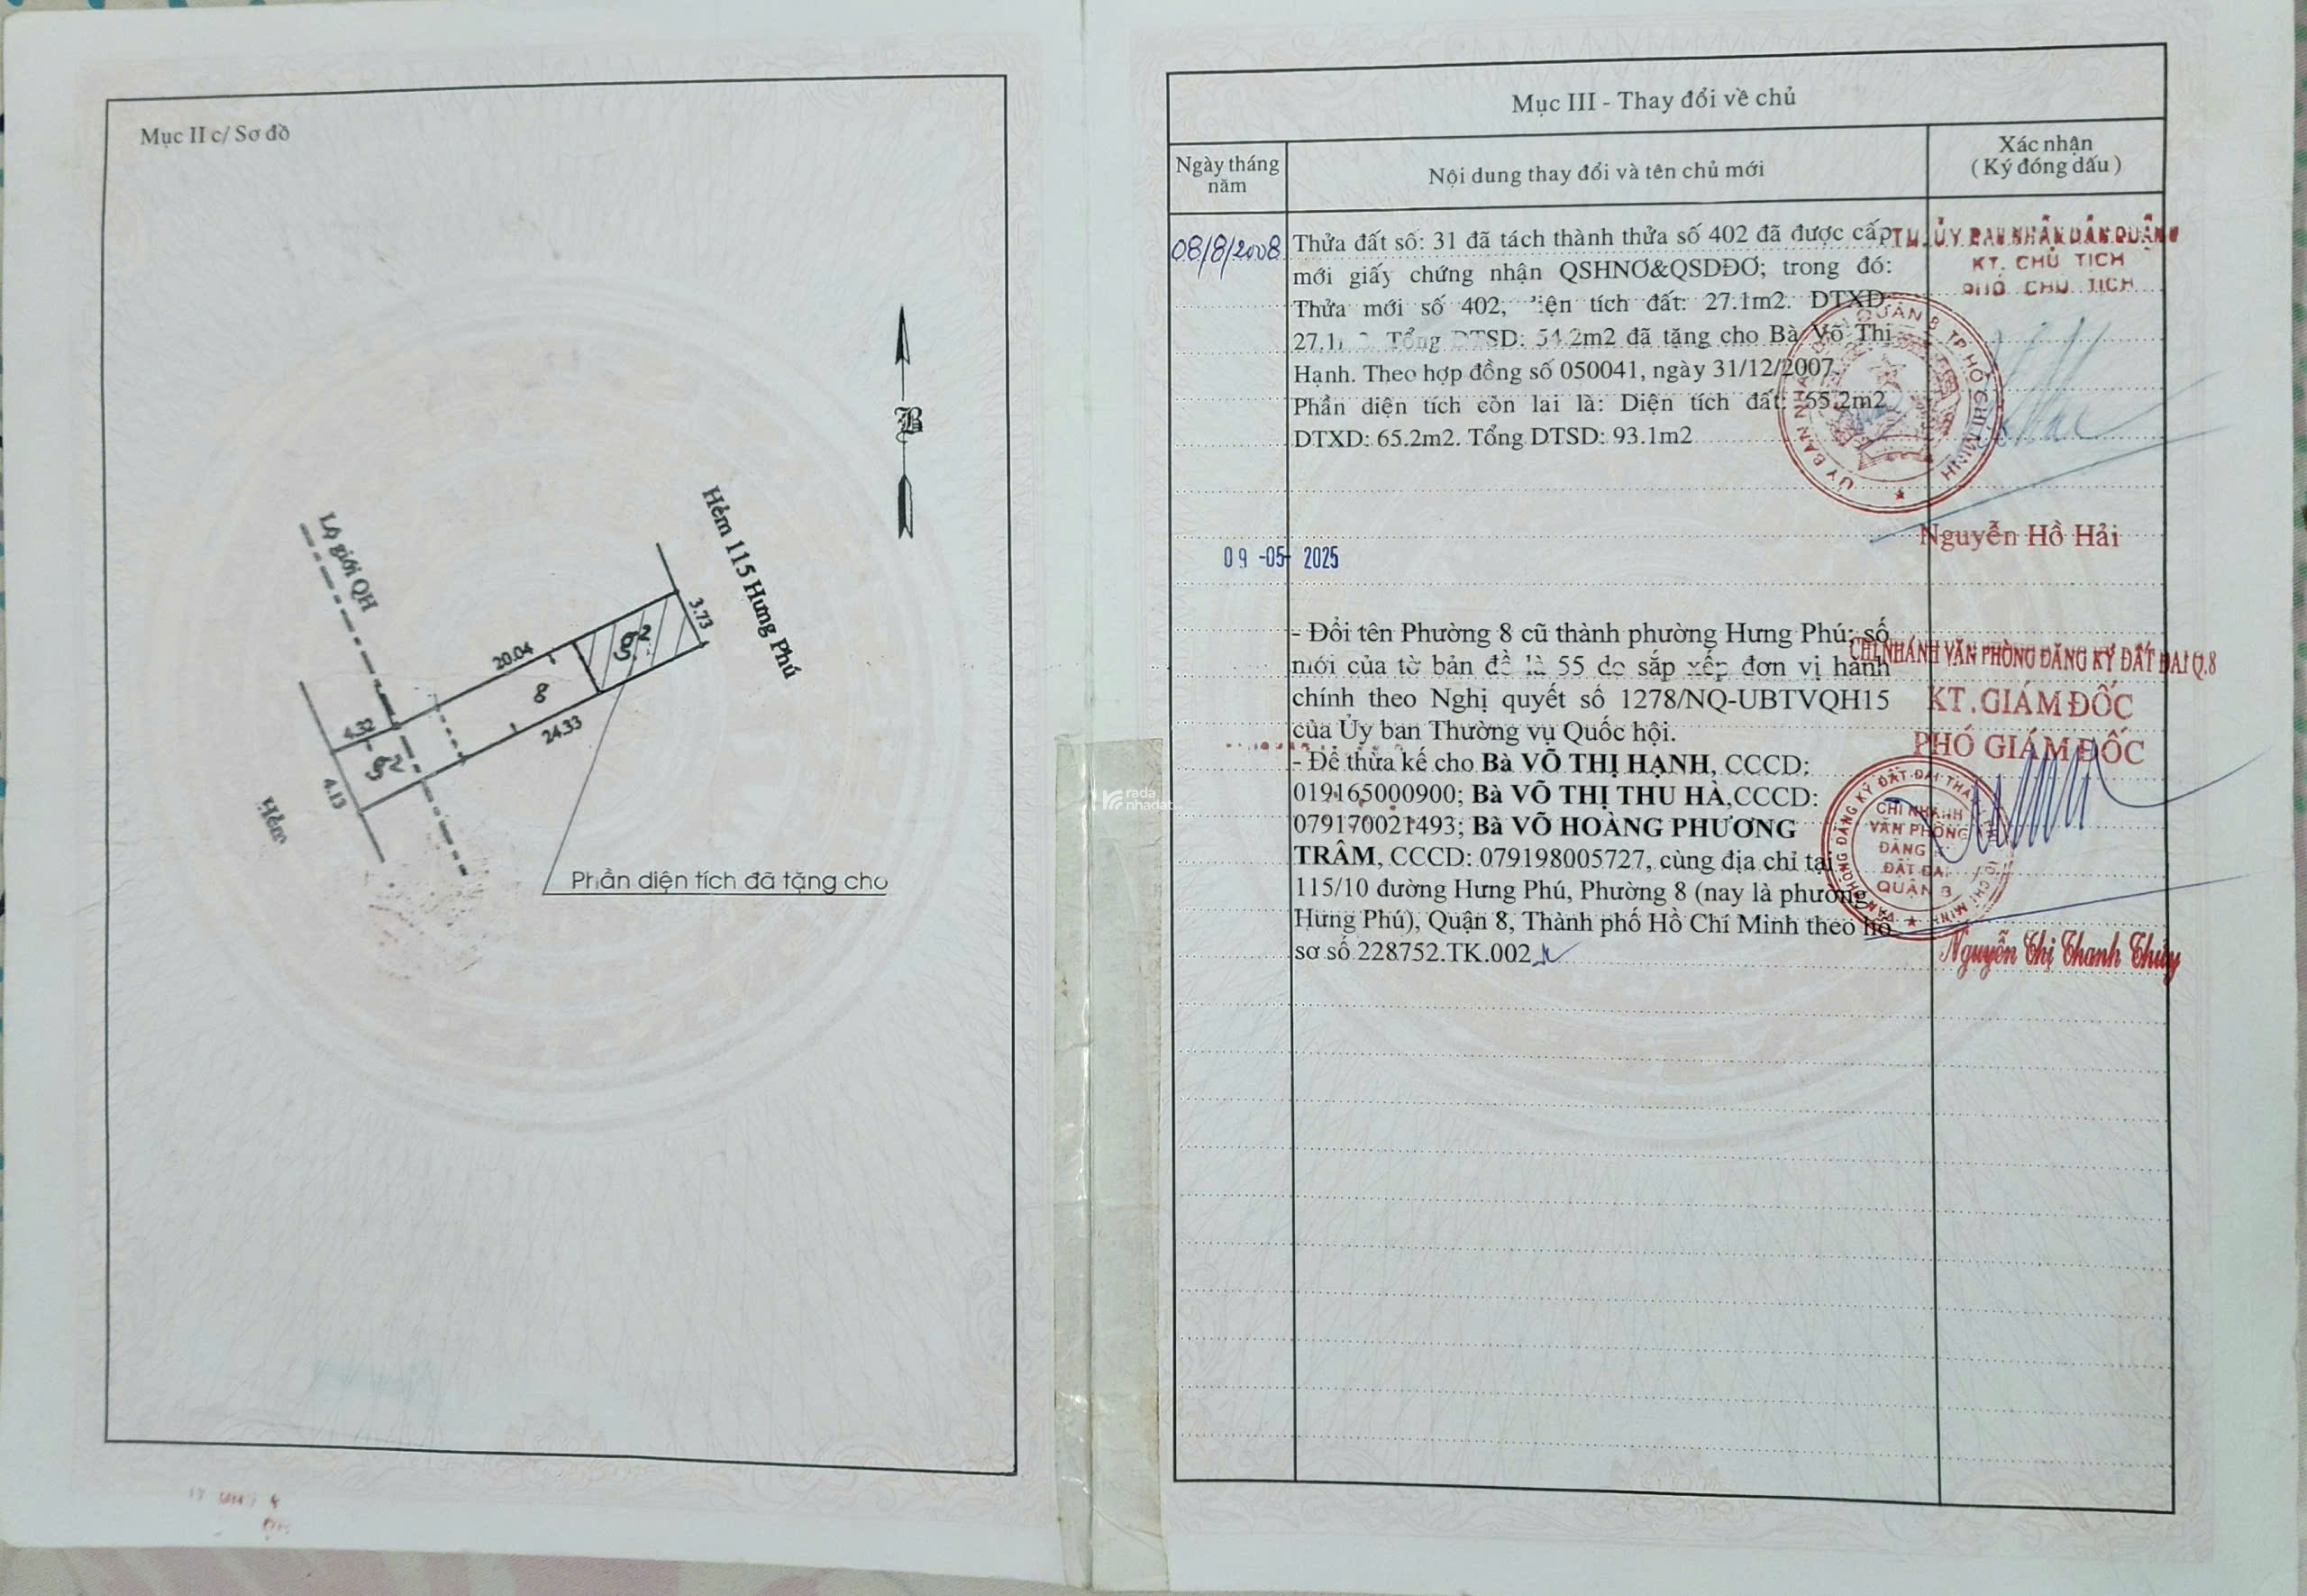 Mục II c/ Sơ đồ
B
Lộ giới QH
Hẻm 115 Hưng Phú
3.73
20.04
8
24.33
4.32
4.13
Hẻm
Phần diện tích đã tặng cho
rada
nhadat
Mục III - Thay đổi về chủ
Ngày tháng
năm
Nội dung thay đổi và tên chủ mới
Xác nhận
( Ký đóng dấu )
08/8/2008
Thửa đất số: 31 đã tách thành thửa số 402 đã được cấp
mới giấy chứng nhận QSHNƠ&QSDĐƠ; trong đó:
Thửa mới số 402, diện tích đất: 27.1m2. DTXD:
Tổng DTSD: 54.2m2 đã tặng cho Bà Võ Thị
Hạnh. Theo hợp đồng số 050041, ngày 31/12/2007.
Phần diện tích còn lại là: Diện tích đất: 65.2m2
DTXD: 65.2m2. Tổng DTSD: 93.1m2
TM. ỦY BAN NHÂN DÂN QUẬN 8
KT. CHỦ TỊCH
PHÓ CHỦ TỊCH
QUẬN 8 TP HỒ CHÍ MINH
ỦY BAN NHÂN DÂN
Nguyễn Hồ Hải
09 -05- 2025
- Đổi tên Phường 8 cũ thành phường Hưng Phú; số
mới của tờ bản đồ là 55 do sắp xếp đơn vị hành
chính theo Nghị quyết số 1278/NQ-UBTVQH15
của Ủy ban Thường vụ Quốc hội.
- Để thừa kế cho Bà VÕ THỊ HẠNH, CCCD:
019165000900; Bà VÕ THỊ THU HÀ,CCCD:
079170021493; Bà VÕ HOÀNG PHƯƠNG
TRÂM, CCCD: 079198005727, cùng địa chỉ tại
115/10 đường Hưng Phú, Phường 8 (nay là phường
Hưng Phú), Quận 8, Thành phố Hồ Chí Minh theo hồ
sơ số 228752.TK.002
CHI NHÁNH VĂN PHÒNG ĐĂNG KÝ ĐẤT ĐAI Q.8
KT. GIÁM ĐỐC
PHÓ GIÁM ĐỐC
VĂN PHÒNG ĐĂNG KÝ ĐẤT ĐAI
CHI NHÁNH
VĂN PHÒNG
ĐĂNG KÝ
ĐẤT ĐAI
QUẬN 8
Nguyễn Thị Thanh Thủy